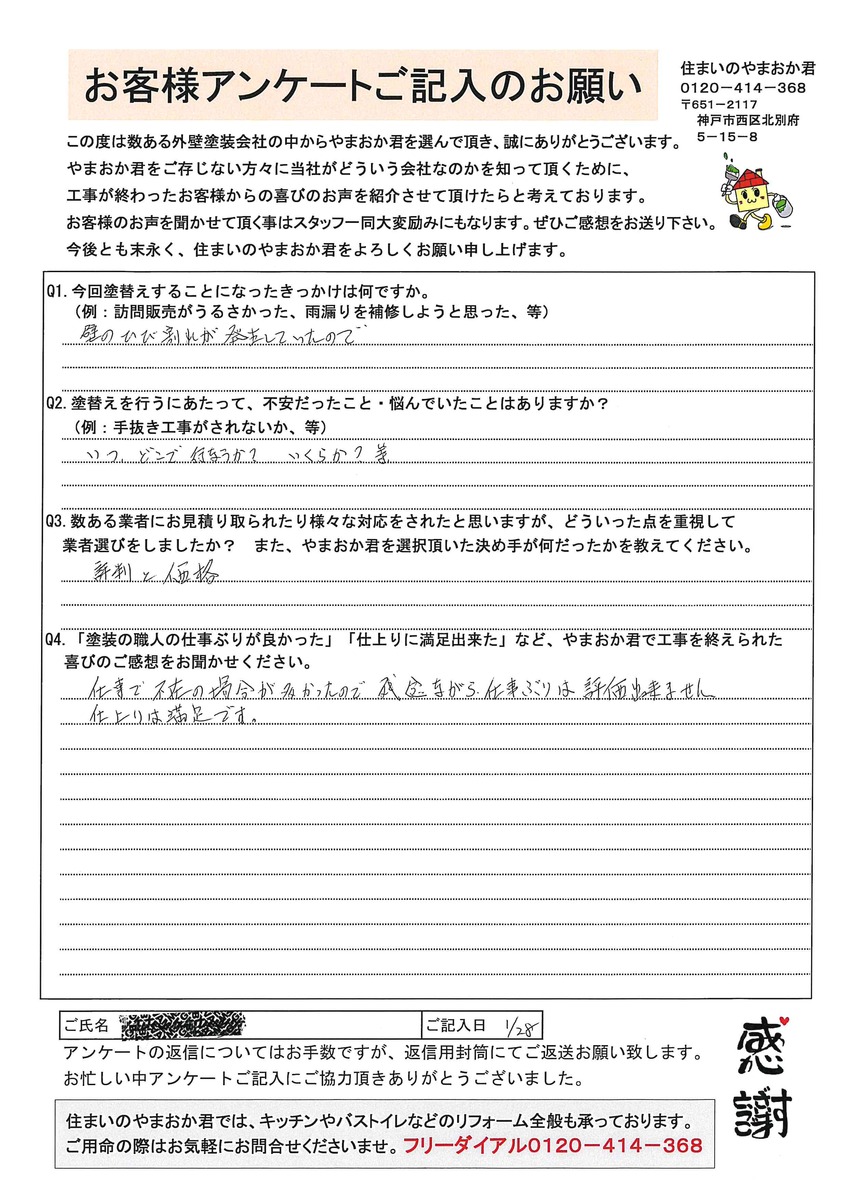 お客様アンケートご記入のお願い
住まいのやまおか君
0120-414-368
〒651-2117
神戸市西区北別府
5-15-8
この度は数ある外壁塗装会社の中からやまおか君を選んで頂き、誠にありがとうございます。
やまおか君をご存じない方々に当社がどういう会社なのかを知って頂くために、
工事が終わったお客様からの喜びのお声を紹介させて頂けたらと考えております。
お客様のお声を聞かせて頂く事はスタッフ一同大変励みにもなります。ぜひご感想をお送り下さい。
今後とも末永く、住まいのやまおか君をよろしくお願い申し上げます。
Q1. 今回塗替えすることになったきっかけは何ですか。
（例：訪問販売がうるさかった、雨漏りを補修しようと思った、等）
壁のひび割れが発生していたので
Q2. 塗替えを行うにあたって、不安だったこと・悩んでいたことはありますか？
（例：手抜き工事がされないか、等）
いつ、どこで行なうか？ いくらか？等
Q3. 数ある業者にお見積り取られたり様々な対応をされたと思いますが、どういった点を重視して
業者選びをしましたか？ また、やまおか君を選択頂いた決め手が何だったかを教えてください。
評判と価格
Q4. 「塗装の職人の仕事ぶりが良かった」「仕上りに満足出来た」など、やまおか君で工事を終えられた
喜びのご感想をお聞かせください。
仕事で不在の場合が多かったので残念ながら仕事ぶりは評価出来ません
仕上りは満足です。
ご氏名
ご記入日 1/28
アンケートの返信についてはお手数ですが、返信用封筒にてご返送お願い致します。
お忙しい中アンケートご記入にご協力頂きありがとうございました。
感謝
住まいのやまおか君では、キッチンやバストイレなどのリフォーム全般も承っております。
ご用命の際はお気軽にお問合せくださいませ。フリーダイアル0120-414-368